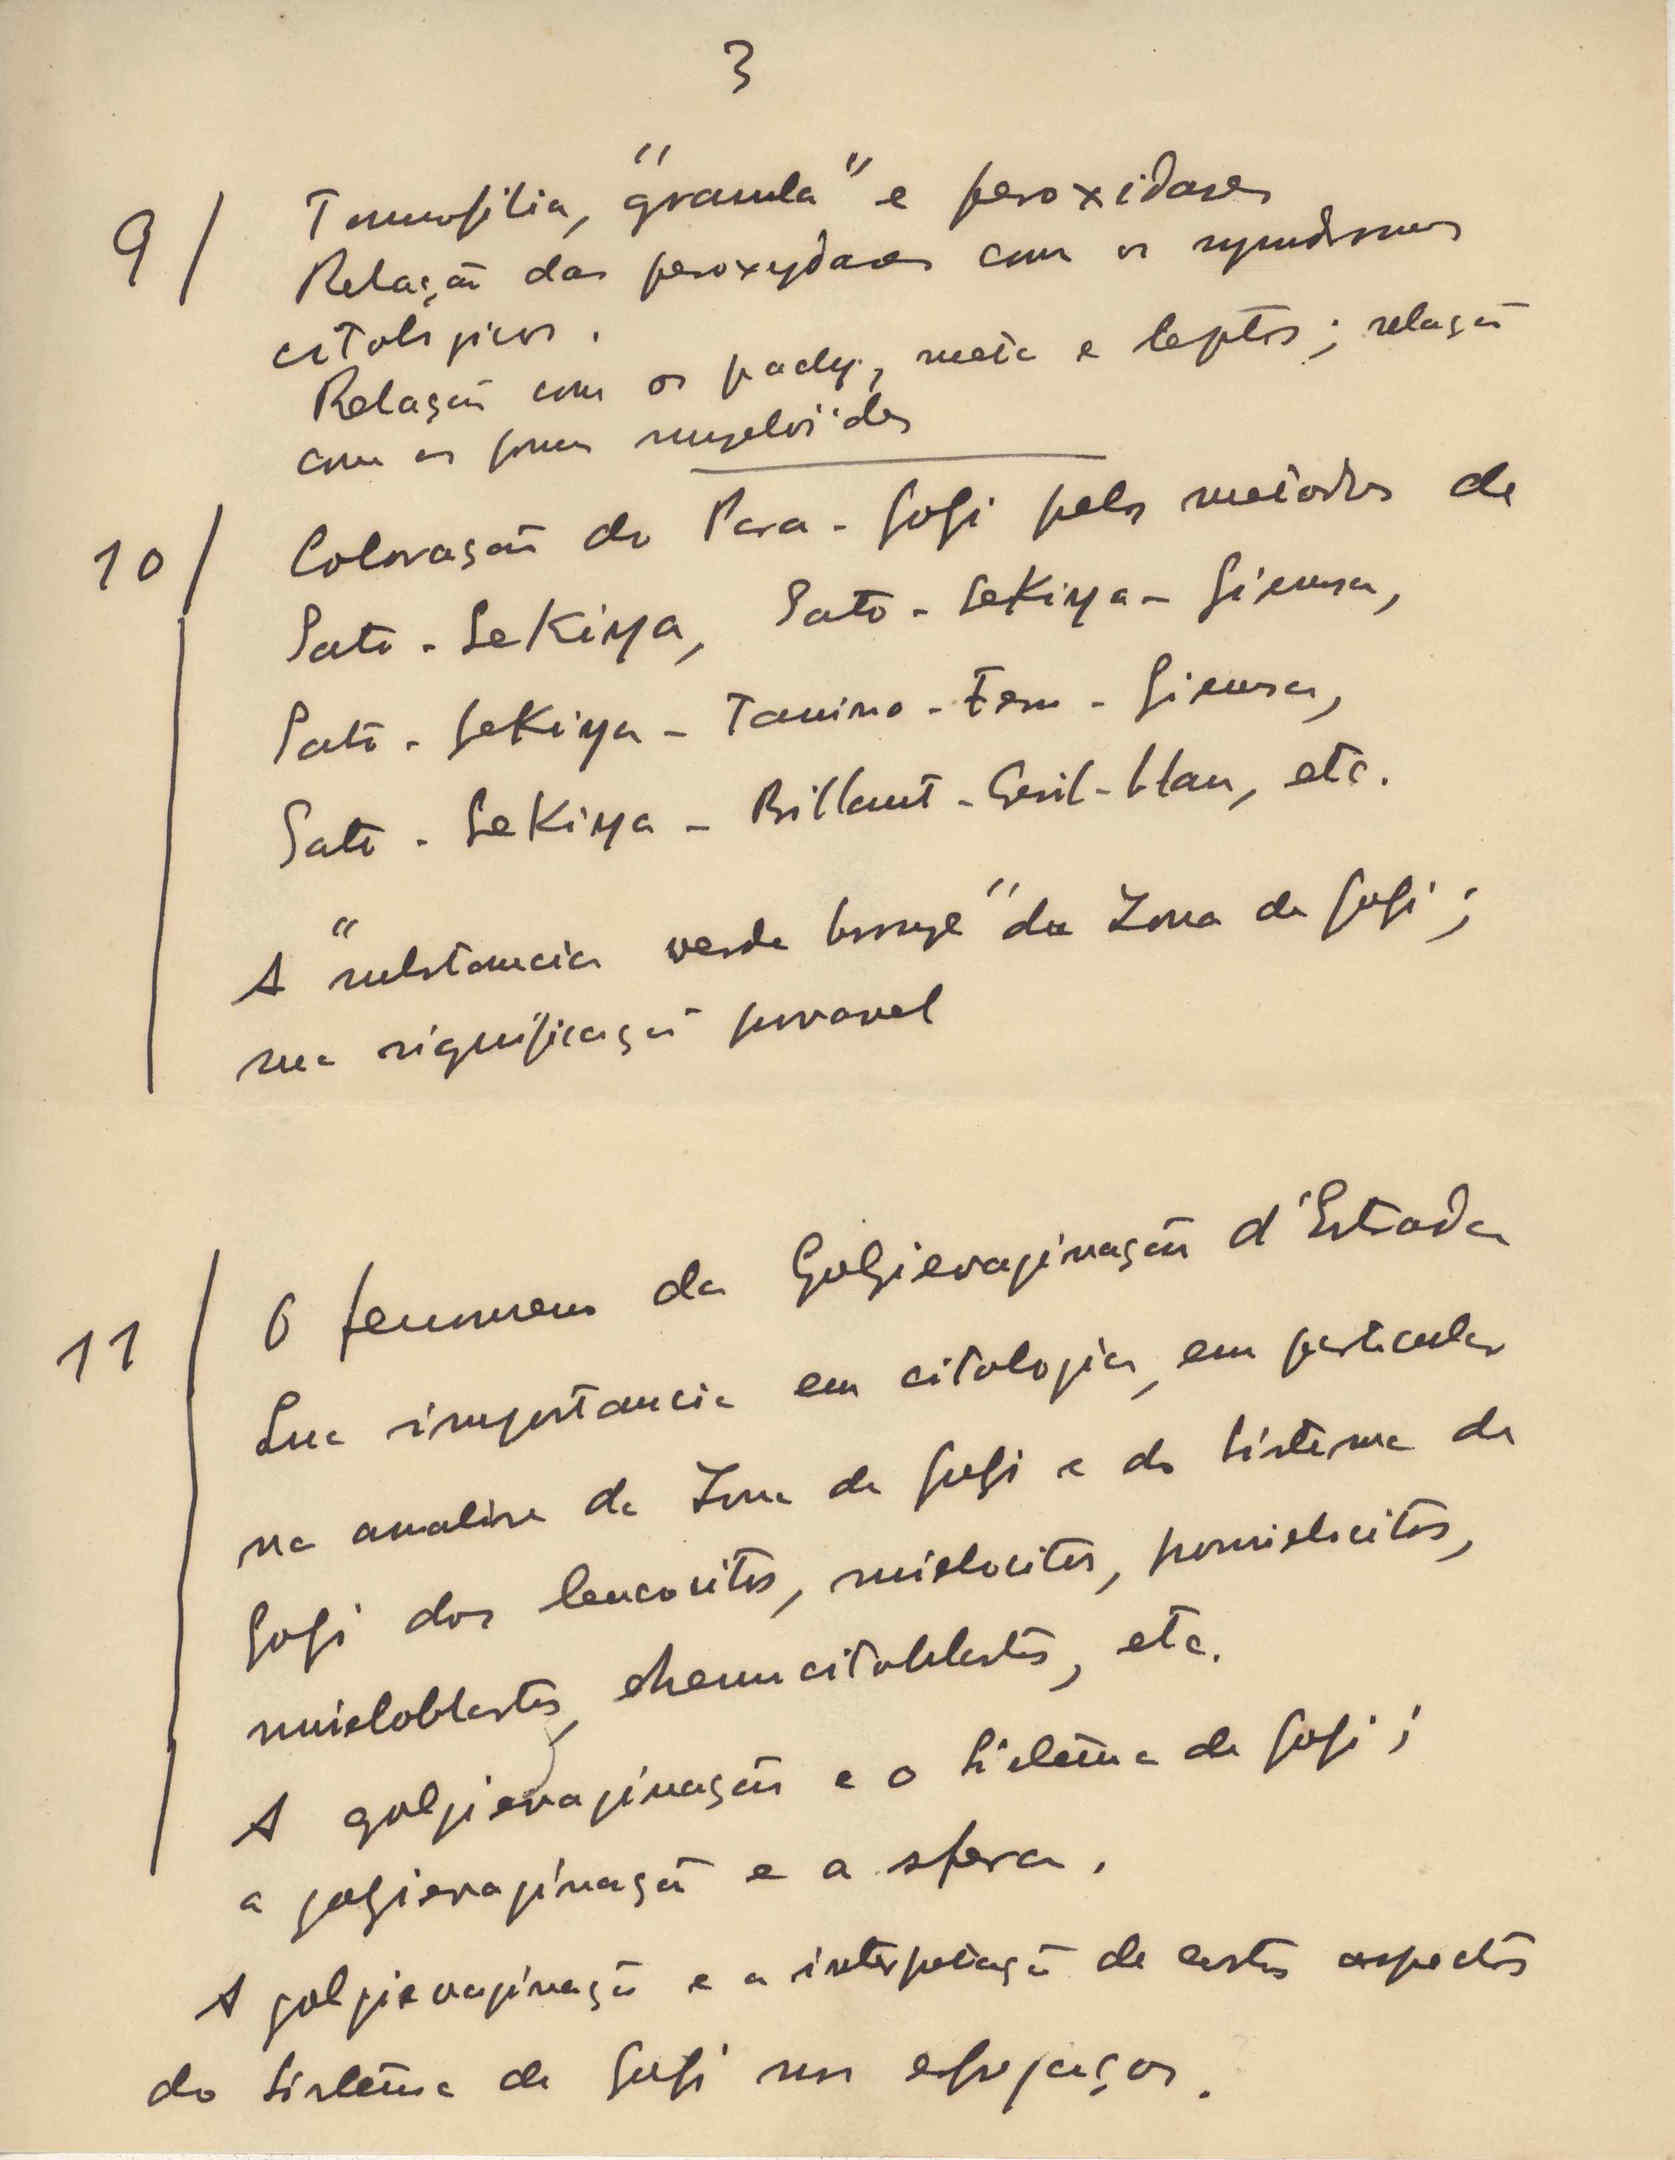 3
9/ Tannofilia, "granula" e peroxidases
Relação das peroxydases com os syndromes
citologicos.
Relação com os pachy, meta e leptos; relação
com as formas myeloïdes
10/ Coloração do Para-Golgi pelos metodos de
Sato-Sekiya, Sato-Sekiya-Giemsa,
Sato-Sekiya-Tanino-Ferro-Giemsa,
Sato-Sekiya-Brillant-Cresil-blau, etc.
A "substancia verde bronze" da Zona de Golgi;
sua significação provavel
11/ O fenomeno da Golgievaginação d'Estrada
Sua importancia em citologia, em particular
na analise da Zona de Golgi e do Sistema de
Golgi dos leucocitos, mielocitos, promielocitos,
mieloblastos, citoblastos, etc.
A golgievaginação e o Sistema de Golgi;
a golgievaginação e a sfera.
A golgievaginação e a interpretação de certos aspectos
do Sistema de Golgi nos esfregaços.